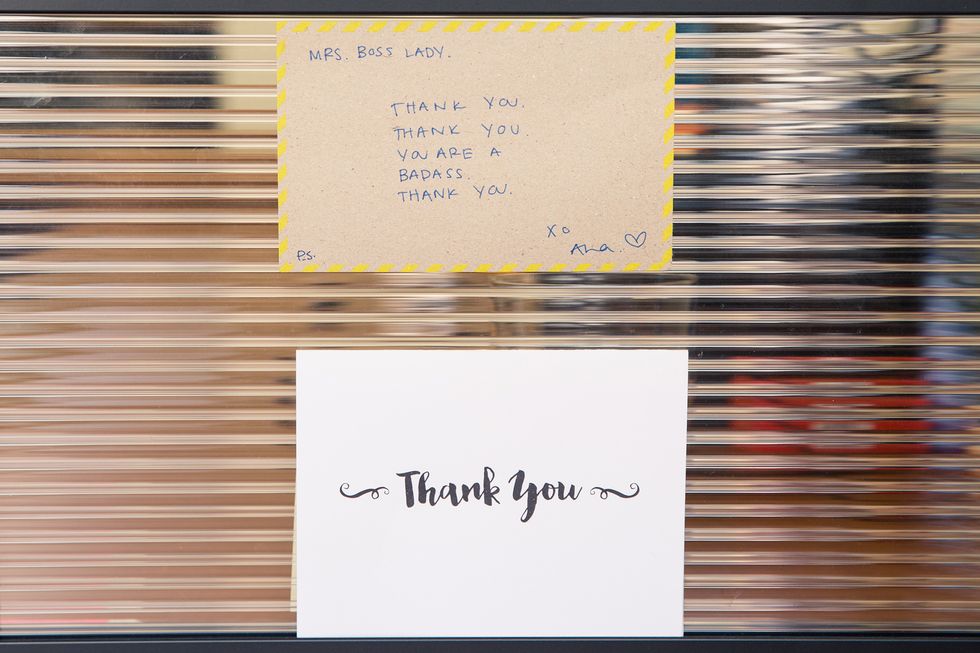 MRS. BOSS LADY.
THANK YOU.
THANK YOU.
YOU ARE A
BADASS.
THANK YOU.
XO
Ana. ♡
P.S.
Thank You